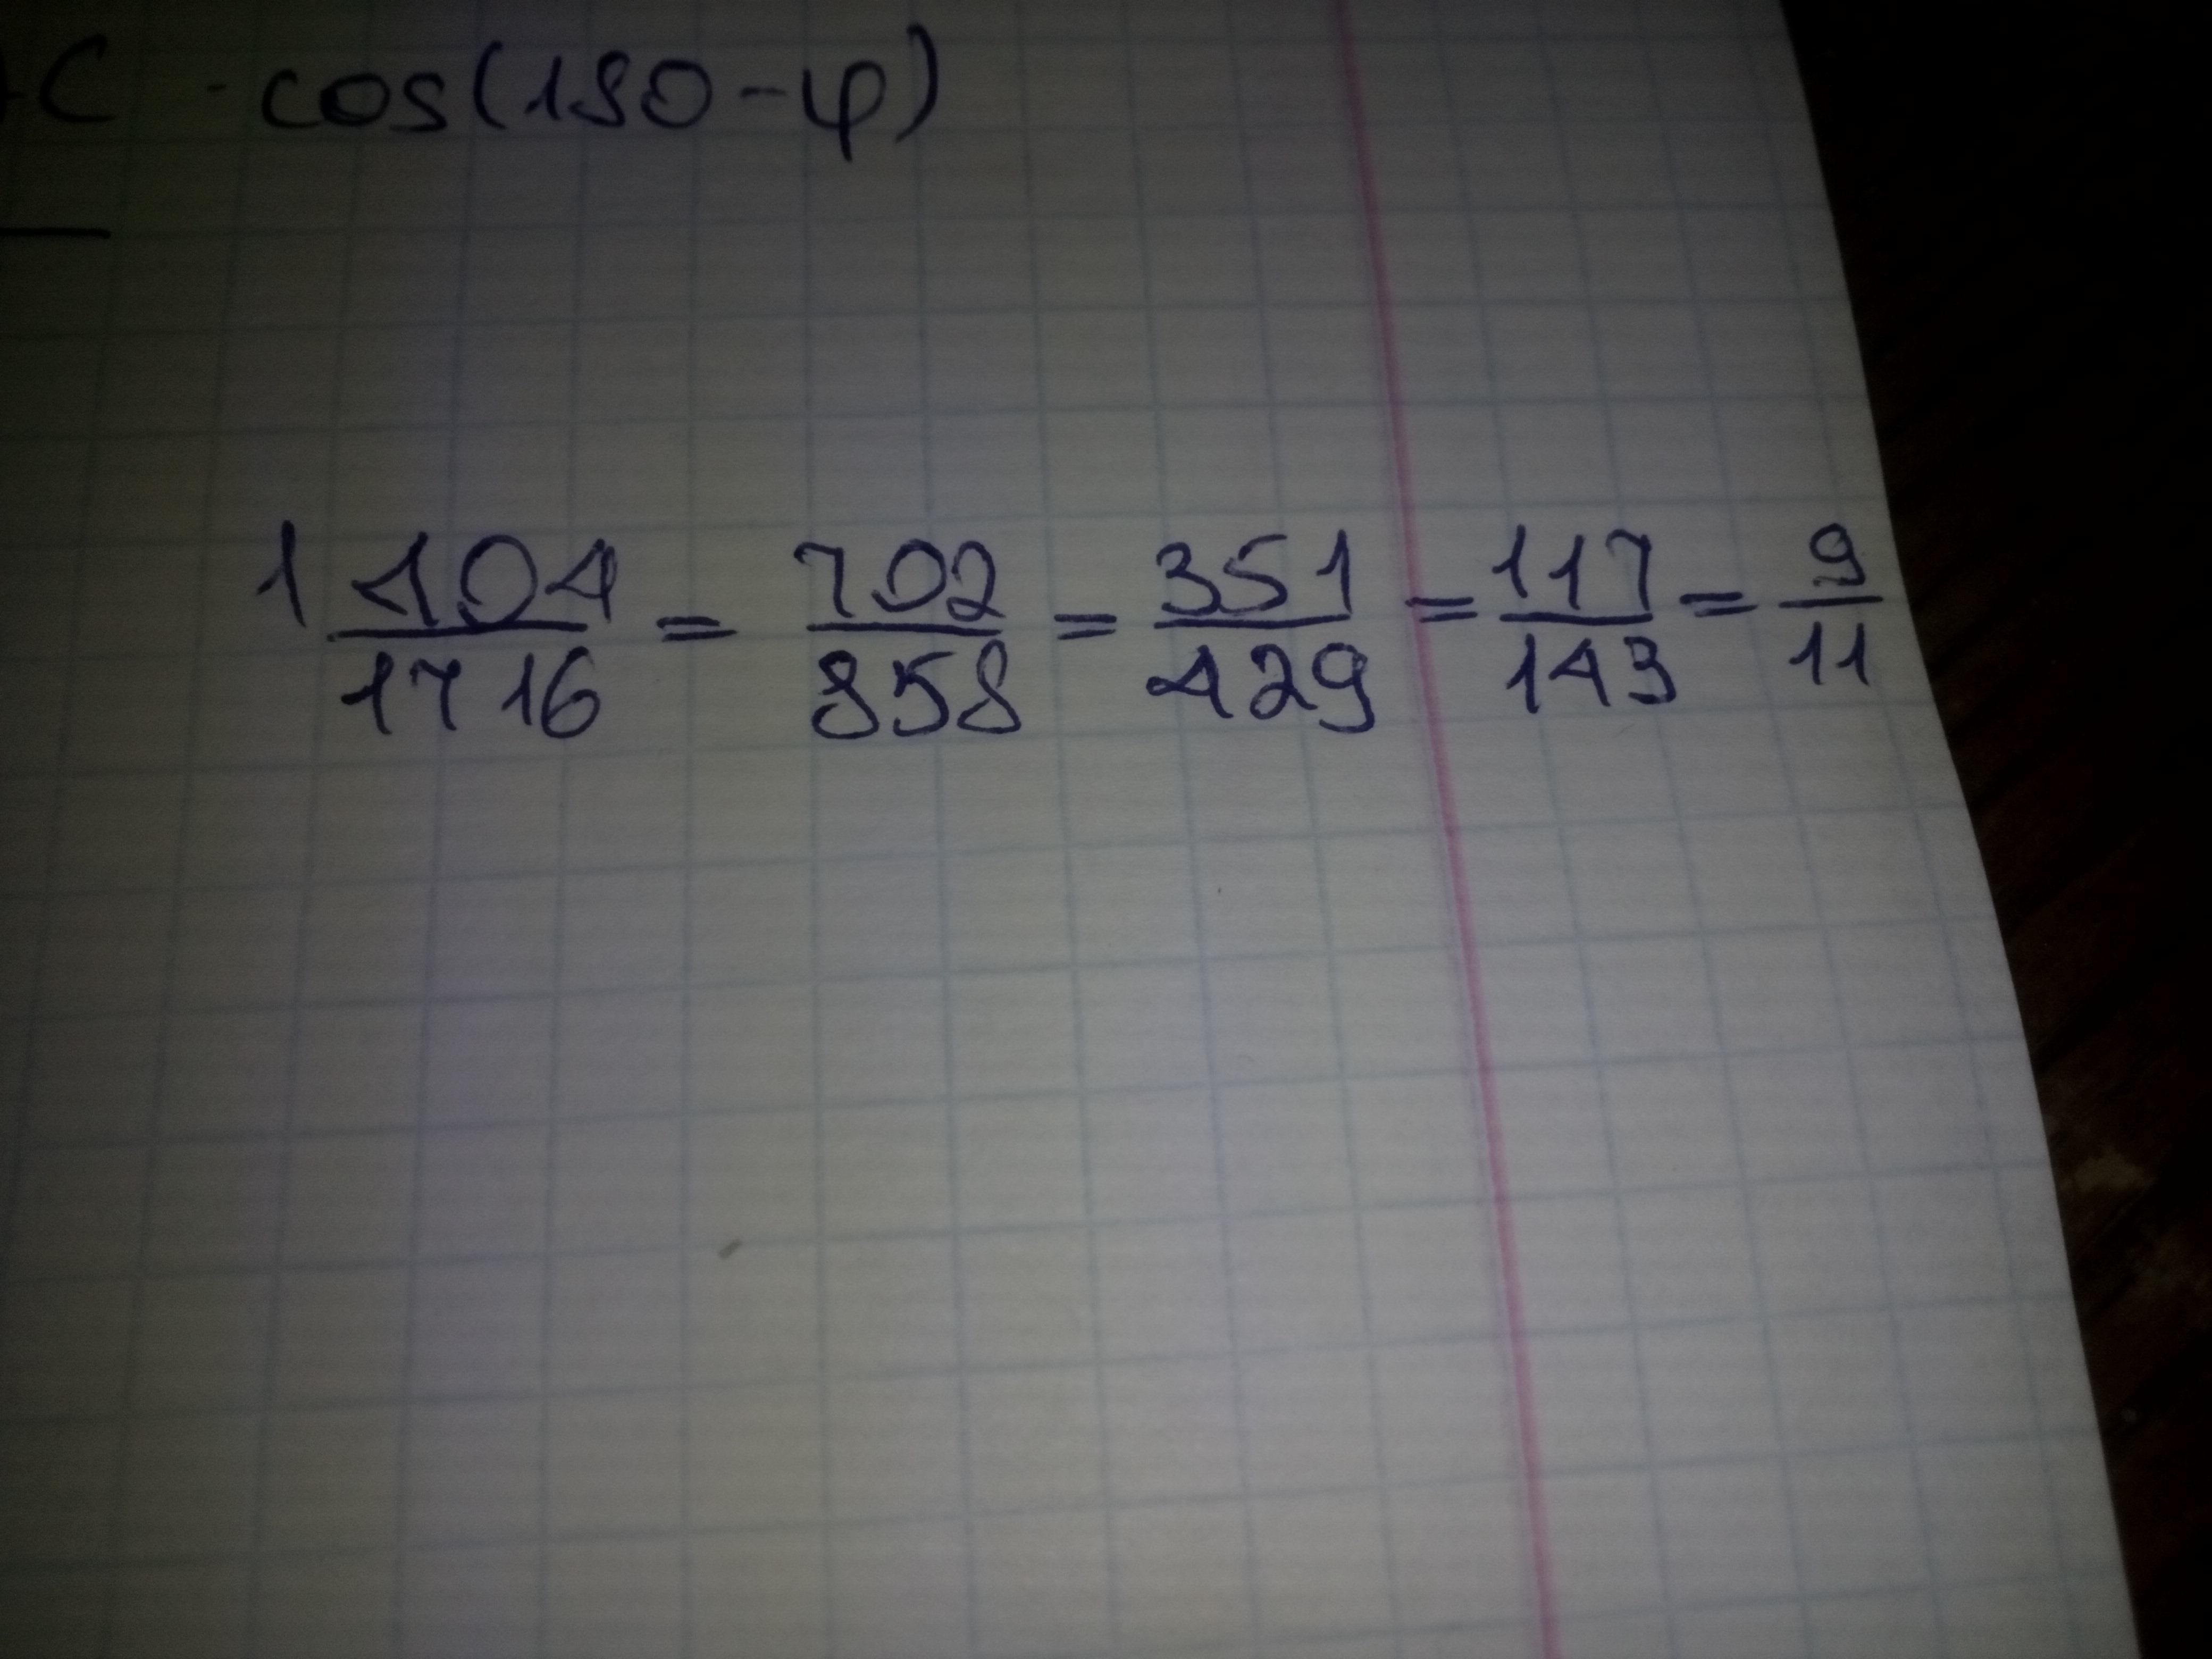 C · cos(180-φ)
1 404/1716 = 702/858 = 351/429 = 117/143 = 9/11